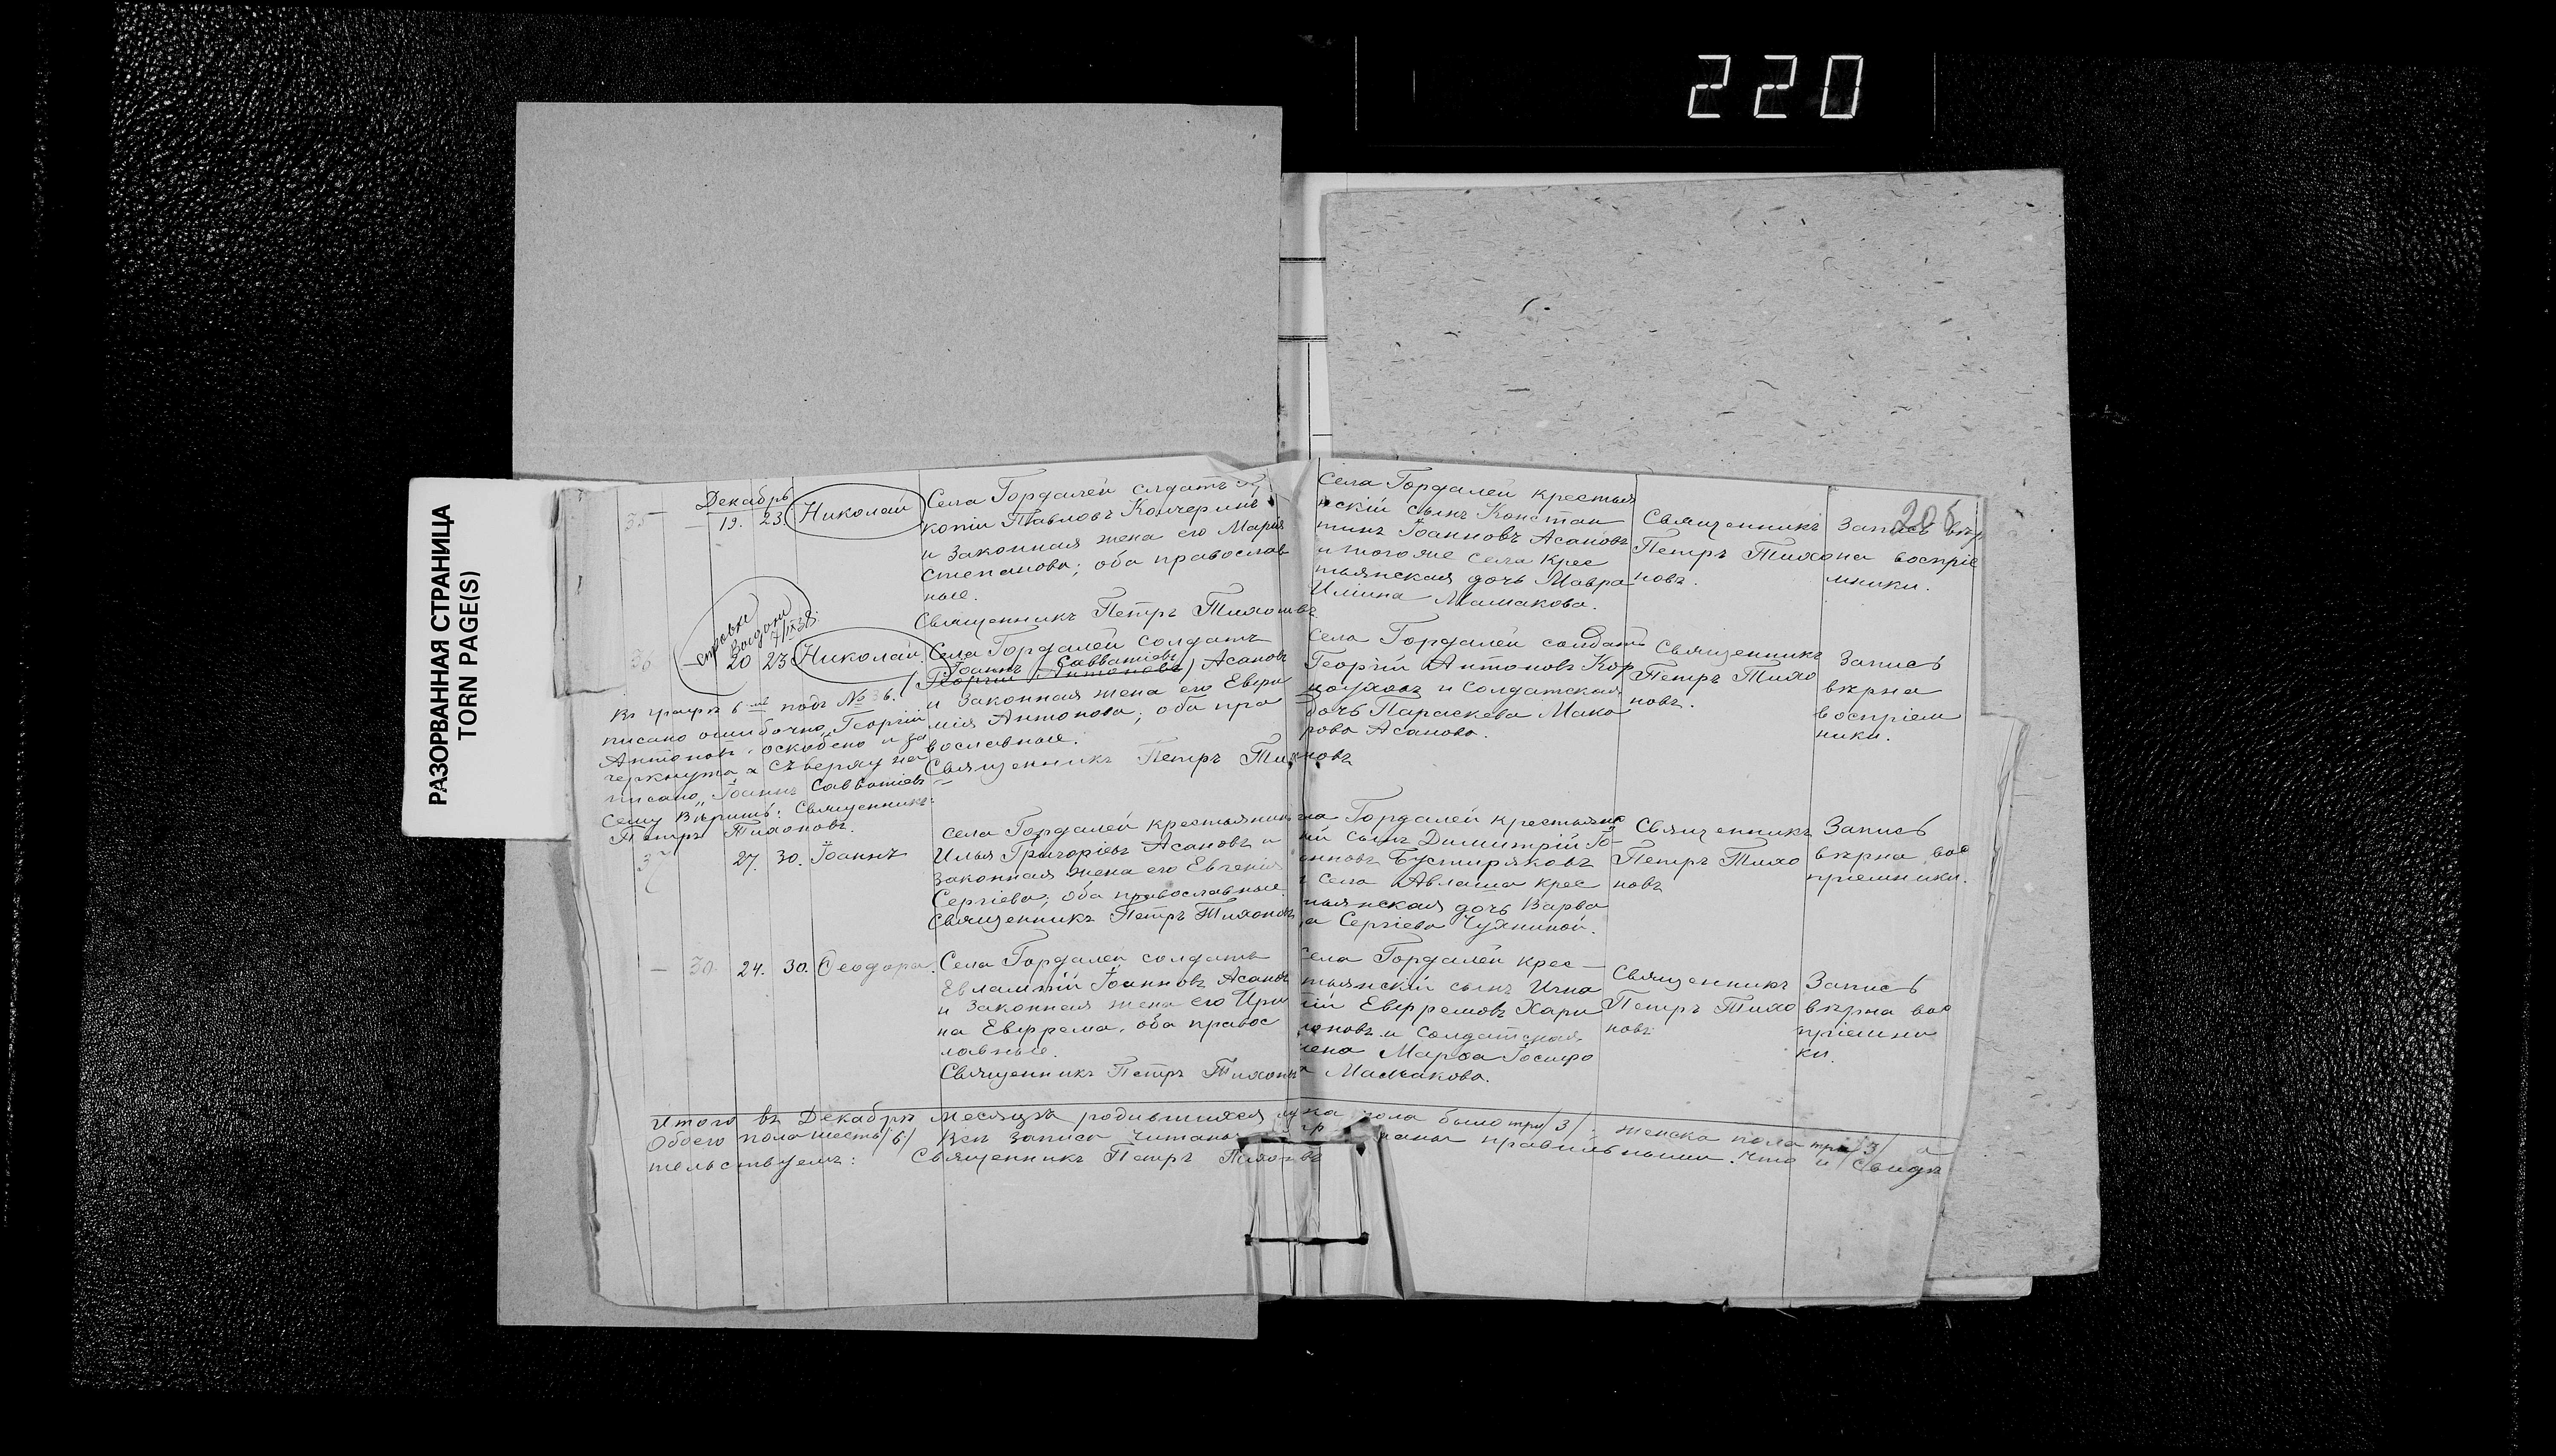 220
РАЗОРВАННАЯ СТРАНИЦА
TORN PAGE(S)
205
Декабрь
35 — 19. 23 Николай
Села Гордалей солдатъ
копій Павловъ Кочеринъ
и законная жена его Марія
Степанова; оба православ
ные.
Священникъ Петръ Тихоновъ
Села Гордалей крестья
нскій сынъ Констан
тинъ Іоанновъ Асановъ
и тогоже села крес
тьянская дочь Мавра
Ильина Мамакова.
Священникъ
Петръ Тихо
новъ.
Запись вѣр
на воспріе
мники.
справка
выдана
7/IX 38.
36 — 20 23 Николай.
Села Гордалей солдатъ
Іоаннъ Савватіевъ
/Георгій Антоновъ/ Асановъ
и законная жена его Евфи
мія Антонова; оба пра
вославные.
Священникъ Петръ Тихоновъ
Села Гордалей солдатъ
Георгій Антоновъ Кор
ноуховъ и солдатская
дочь Параскева Мака
рова Асанова.
Священникъ
Петръ Тихо
новъ.
Запись
вѣрна
воспріем
ники.
Въ графѣ 6й подъ № 36.
писано ошибочно „Георгій
Антоновъ" оскоблено и за
черкнуто а съверху на
писано „Іоаннъ Савватіевъ
сему вѣрить: Священникъ
Петръ Тихоновъ.
37 27. 30. Іоаннъ
Села Гордалей крестьянинъ
Илья Григоріевъ Асановъ и
законная жена его Евгенія
Сергіева; оба православные.
Священникъ Петръ Тихоновъ
ла Гордалей крестьянс
кій сынъ Димитрій Іо-
анновъ Бустиряковъ
и села Авлаша крес
тьянская дочь Варва
ра Сергіева Чухниной.
Священникъ
Петръ Тихо
новъ
Запись
вѣрна вос
пріемники.
— 30. 24. 30. Ѳеодора.
Села Гордалей солдатъ
Евлампій Іоанновъ Асановъ
и законная жена его Ири
на Ефрема, оба правос
лавные.
Священникъ Петръ Тихоновъ
Села Гордалей крес-
тьянскій сынъ Игна
тій Ефремовъ Хари
тоновъ и солдатская
жена Марѳа Іосифо
ва Мамакова.
Священникъ
Петръ Тихо
новъ
Запись
вѣрна вос
пріемни
ки.
Итого въ Декабрѣ месяцѣ родившихся муж пола было три /3/; женска пола три /3/ а
Обоего пола шесть /6/ Всѣ записи читаны правильными. что и свидѣ
тельствуемъ: Священникъ Петръ Тихоновъ